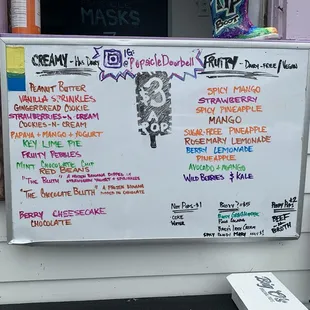 MASKS
CREAMY - Has Dairy
IG:
@PopsicleDoorbell
FRUITY - Dairy-Free / Vegan
PEANUT BUTTER
VANILLA SPRINKLES
GINGERBREAD COOKIE
STRAWBERRIES-N-CREAM
COOKIES-N-CREAM
PAPAYA + MANGO + YOGURT
KEY LIME PIE
FRUITY PEBBLES
MINT CHOCOLATE CHIP
RED BEANS
"THE BLUTH" A FROZEN BANANA DIPPED IN
"THE CHOCOLATE BLUTH" A FROZEN BANANA
DIPPED IN CHOCOLATE
BERRY CHEESECAKE
CHOCOLATE
3
POP
SPICY MANGO
STRAWBERRY
SPICY PINEAPPLE
MANGO
SUGAR-FREE PINEAPPLE
ROSEMARY LEMONADE
BERRY LEMONADE
PINEAPPLE
AVOCADO + MANGO
WILD BERRIES & KALE
NOT POPS - $1
COKE
WATER
PUPPY POPS $2
BEEF
BROTH